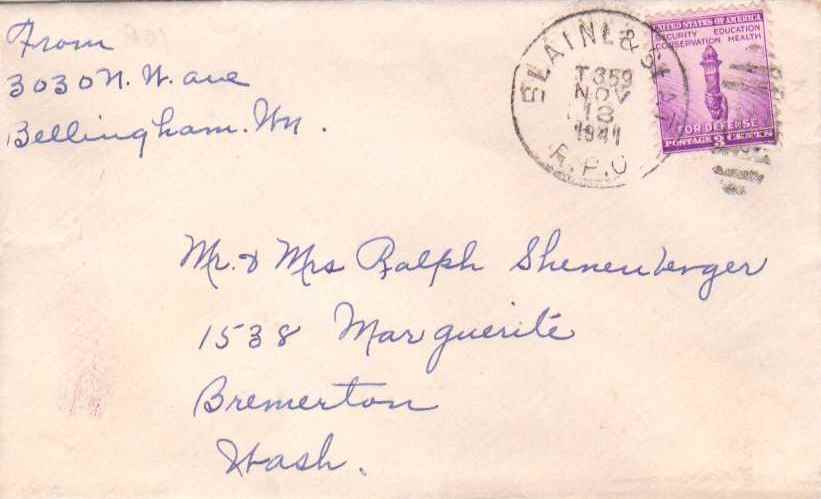 From
3030 N. W. ave
Bellingham. Wn.
BLAINE & S
T359
NOV
13
1941
R.P.O
UNITED STATES OF AMERICA
SECURITY EDUCATION
CONSERVATION HEALTH
FOR DEFENSE
POSTAGE 3 CENTS
Mr. & Mrs Ralph Shenenberger
1538 Marguerite
Bremerton
Wash.